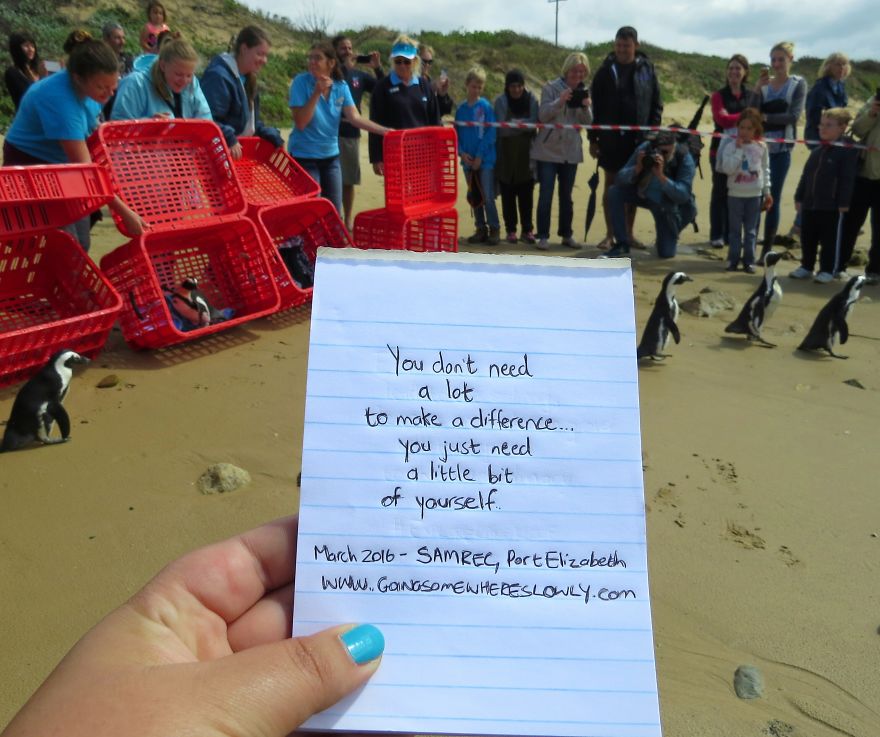 You don't need
a lot
to make a difference...
you just need
a little bit
of yourself.
March 2016 - SAMREC, Port Elizabeth
WWW.GOINGSOMEWHERESLOWLY.com